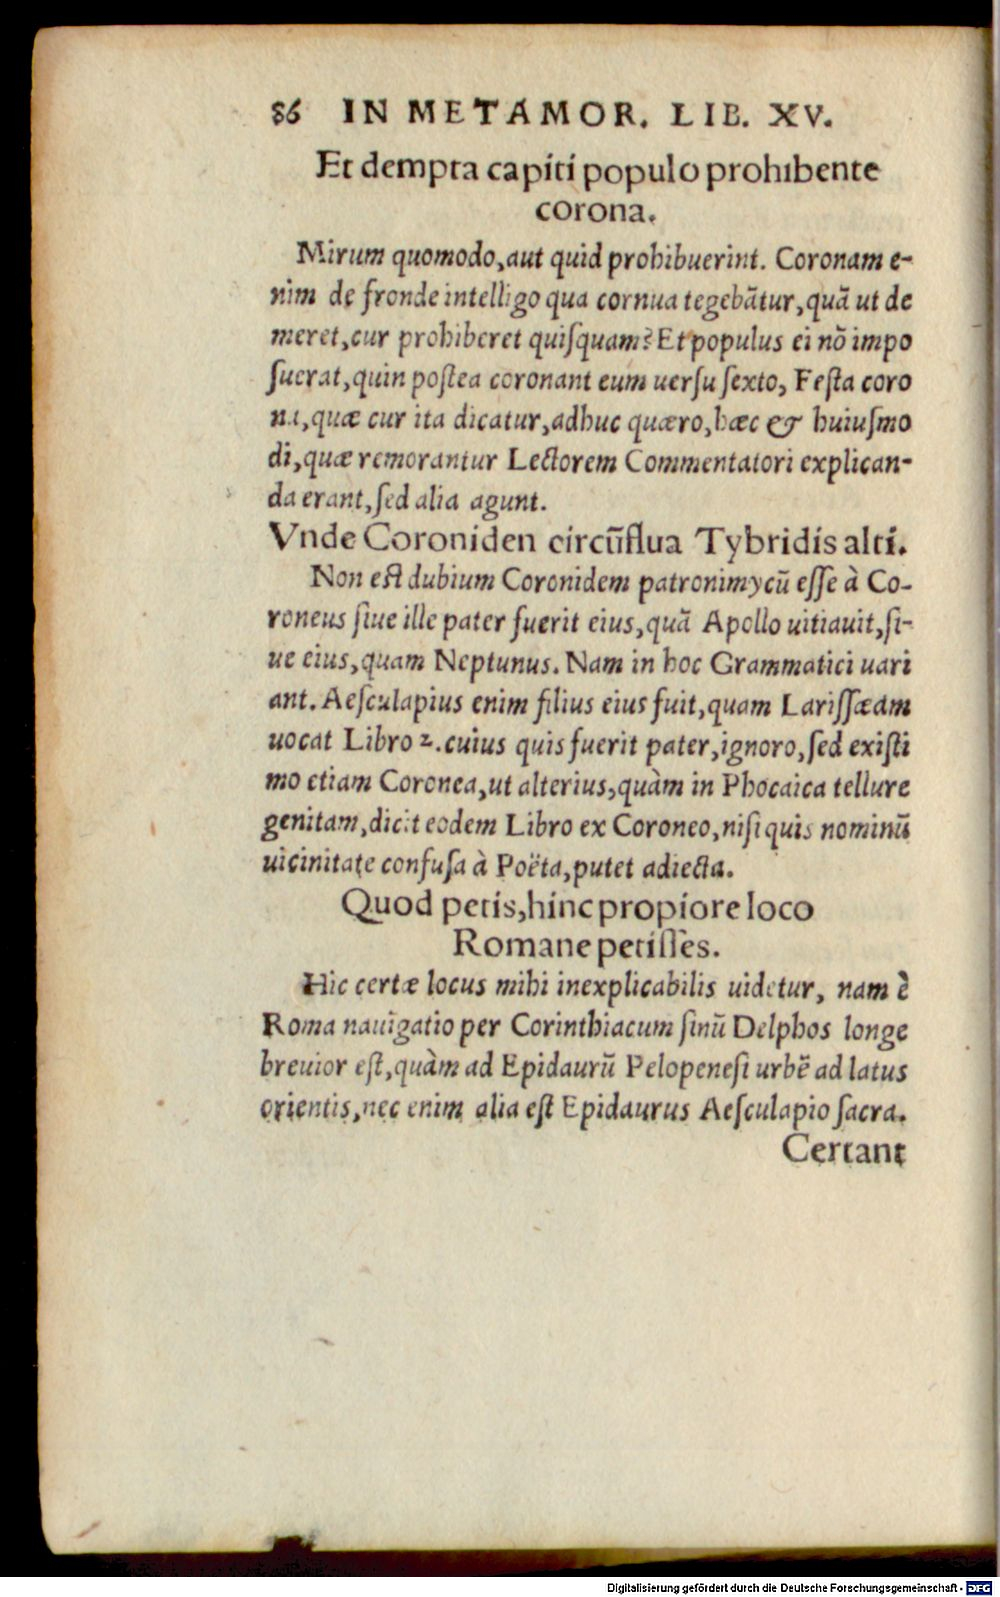 86 IN METAMOR. LIB. XV.
Et dempta capiti populo prohibente
corona.
Mirum quomodo, aut quid prohibuerint. Coronam e-
nim de fronde intelligo qua cornua tegebãtur, quã ut de
meret, cur prohiberet quiſquam? Et populus ei nõ impo
ſuerat, quin poſtea coronant eum uerſu ſexto, Feſta coro
na, quæ cur ita dicatur, adhuc quæro, hæc & huiuſmo
di, quæ remorantur Lectorem Commentatori explican-
da erant, ſed alia agunt.
Vnde Coroniden circũflua Tybridis alti.
Non eſt dubium Coronidem patronimycũ eſſe à Co-
roneus ſiue ille pater fuerit eius, quã Apollo uitiauit, ſi-
ue eius, quam Neptunus. Nam in hoc Grammatici uari
ant. Aeſculapius enim filius eius fuit, quam Lariſſæam
uocat Libro 2. cuius quis fuerit pater, ignoro, ſed exiſti
mo etiam Coronea, ut alterius, quàm in Phocaica tellure
genitam, dicit eodem Libro ex Coroneo, niſi quis nominũ
uicinitate confuſa à Poëta, putet adiecta.
Quod petis, hinc propiore loco
Romane petiſſes.
Hic certæ locus mihi inexplicabilis uidetur, nam è
Roma nauigatio per Corinthiacum ſinũ Delphos longe
breuior eſt, quàm ad Epidaurũ Pelopeneſi urbẽ ad latus
orientis, nec enim alia eſt Epidaurus Aeſculapio ſacra.
Certant
Digitalisierung gefördert durch die Deutsche Forschungsgemeinschaft - DFG